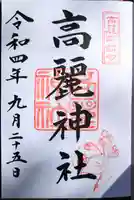 高麗神社
令和四年九月二十五日